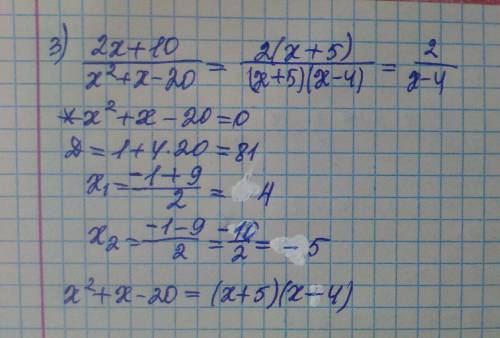 3) (2x+10)/(x²+x-20) = 2(x+5)/((x+5)(x-4)) = 2/(x-4)
*x²+x-20=0
D=1+4·20=81
x₁=(-1+9)/2= 4
x₂=(-1-9)/2=-10/2=-5
x²+x-20=(x+5)(x-4)